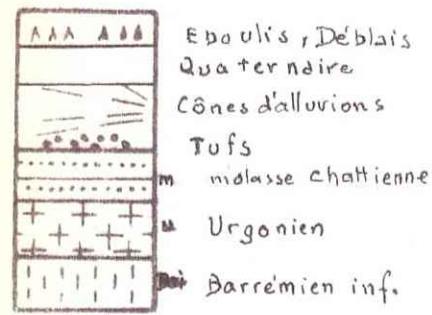 Eboulis, Déblais
Quaterndire
Cônes d'alluvions
Tufs
m molasse chattienne
u Urgonien
Barrémien inf.